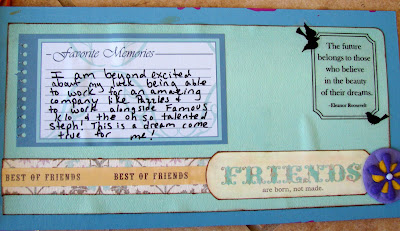 Favorite Memories
I am beyond excited
about my luck being able
to work for an amazing
company like Pazzles &
to work alongside Famous
Klo & the oh so talented
Steph! This is a dream come
true for me!
The future
belongs to those
who believe
in the beauty
of their dreams.
-Eleanor Roosevelt
BEST OF FRIENDS BEST OF FRIENDS
FRIENDS
are born, not made.